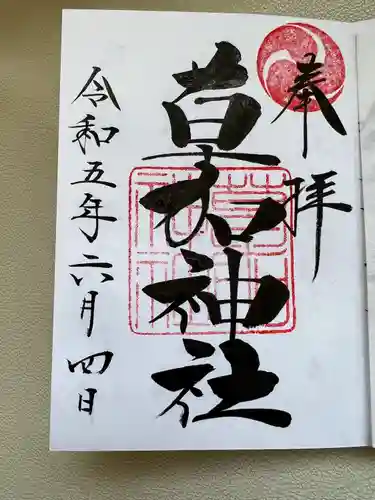 奉拝
草加神社
令和五年六月四日